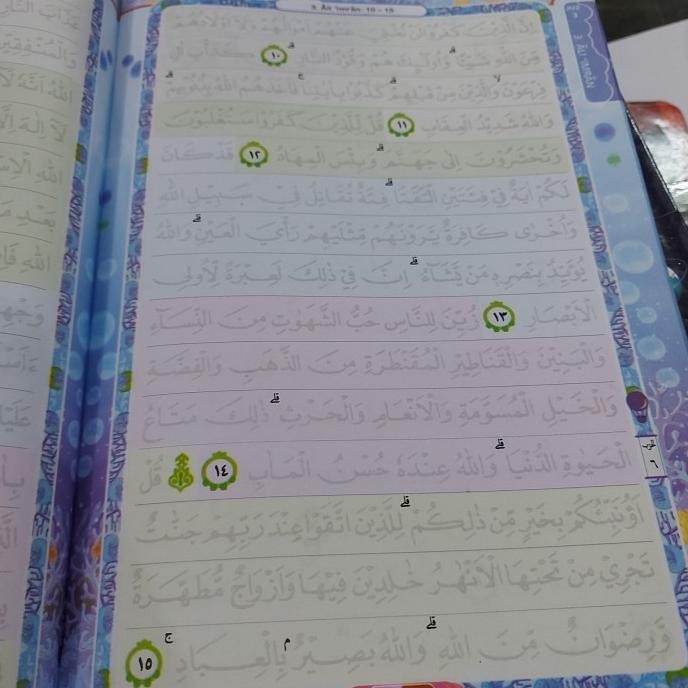 3. Āli 'Imrān: 10 - 15
3. ĀLI 'IMRĀN
اِنَّ الَّذِيْنَ كَفَرُوْا لَنْ تُغْنِيَ عَنْهُمْ اَمْوَالُهُمْ وَلَآ اَوْلَادُهُمْ
مِّنَ اللّٰهِ شَيْـًٔا ۗ وَاُولٰۤىِٕكَ هُمْ وَقُوْدُ النَّارِۗ ١٠ كَدَأْبِ اٰلِ
فِرْعَوْنَۙ وَالَّذِيْنَ مِنْ قَبْلِهِمْۗ كَذَّبُوْا بِاٰيٰتِنَاۚ فَاَخَذَهُمُ اللّٰهُ بِذُنُوْبِهِمْۗ
وَاللّٰهُ شَدِيْدُ الْعِقَابِ ١١ قُلْ لِّلَّذِيْنَ كَفَرُوْا سَتُغْلَبُوْنَ
وَتُحْشَرُوْنَ اِلٰى جَهَنَّمَۗ وَبِئْسَ الْمِهَادُ ١٢ قَدْ كَانَ
لَكُمْ اٰيَةٌ فِيْ فِئَتَيْنِ الْتَقَتَاۗ فِئَةٌ تُقَاتِلُ فِيْ سَبِيْلِ اللّٰهِ
وَاُخْرٰى كَافِرَةٌ يَّرَوْنَهُمْ مِّثْلَيْهِمْ رَأْيَ الْعَيْنِۗ وَاللّٰهُ
يُؤَيِّدُ بِنَصْرِهٖ مَنْ يَّشَاۤءُۗ اِنَّ فِيْ ذٰلِكَ لَعِبْرَةً لِّاُولِى
الْاَبْصَارِ ١٣ زُيِّنَ لِلنَّاسِ حُبُّ الشَّهَوٰتِ مِنَ النِّسَاۤءِ
وَالْبَنِيْنَ وَالْقَنَاطِيْرِ الْمُقَنْطَرَةِ مِنَ الذَّهَبِ وَالْفِضَّةِ
وَالْخَيْلِ الْمُسَوَّمَةِ وَالْاَنْعَامِ وَالْحَرْثِۗ ذٰلِكَ مَتَاعُ
الْحَيٰوةِ الدُّنْيَاۗ وَاللّٰهُ عِنْدَهٗ حُسْنُ الْمَاٰبِ ١٤ قُلْ
اَؤُنَبِّئُكُمْ بِخَيْرٍ مِّنْ ذٰلِكُمْۗ لِلَّذِيْنَ اتَّقَوْا عِنْدَ رَبِّهِمْ جَنّٰتٌ
تَجْرِيْ مِنْ تَحْتِهَا الْاَنْهٰرُ خٰلِدِيْنَ فِيْهَا وَاَزْوَاجٌ مُّطَهَّرَةٌ
وَّرِضْوَانٌ مِّنَ اللّٰهِۗ وَاللّٰهُ بَصِيْرٌۢ بِالْعِبَادِۚ ١٥